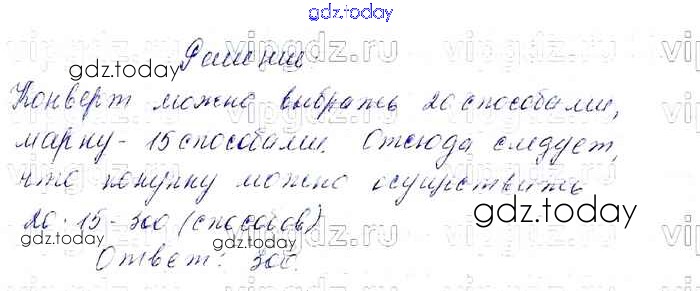 gdz.today
Решение
Конверт можно выбрать 20 способами,
марку - 15 способами. Отсюда следует,
что покупку можно осуществить
20 · 15 - 300 (способов)
Ответ: 300.
gdz.today
gdz.today
gdz.today
gdz.today
gdz.today
vipgdz.ru